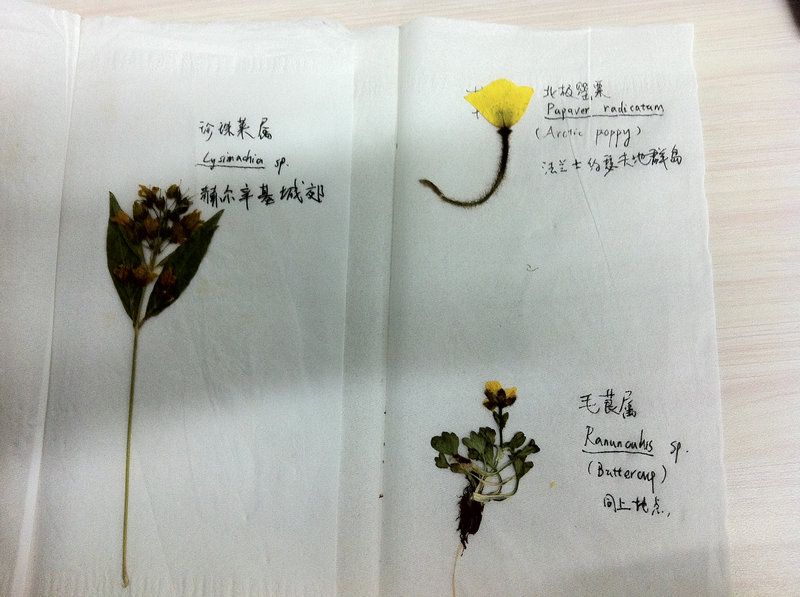 珍珠菜属
Lysimachia sp.
赫尔辛基城郊
北极罂粟
Papaver radicatum
(Arctic poppy)
法兰士约瑟夫地群岛
毛茛属
Ranunculus sp.
(Buttercup)
同上地点,